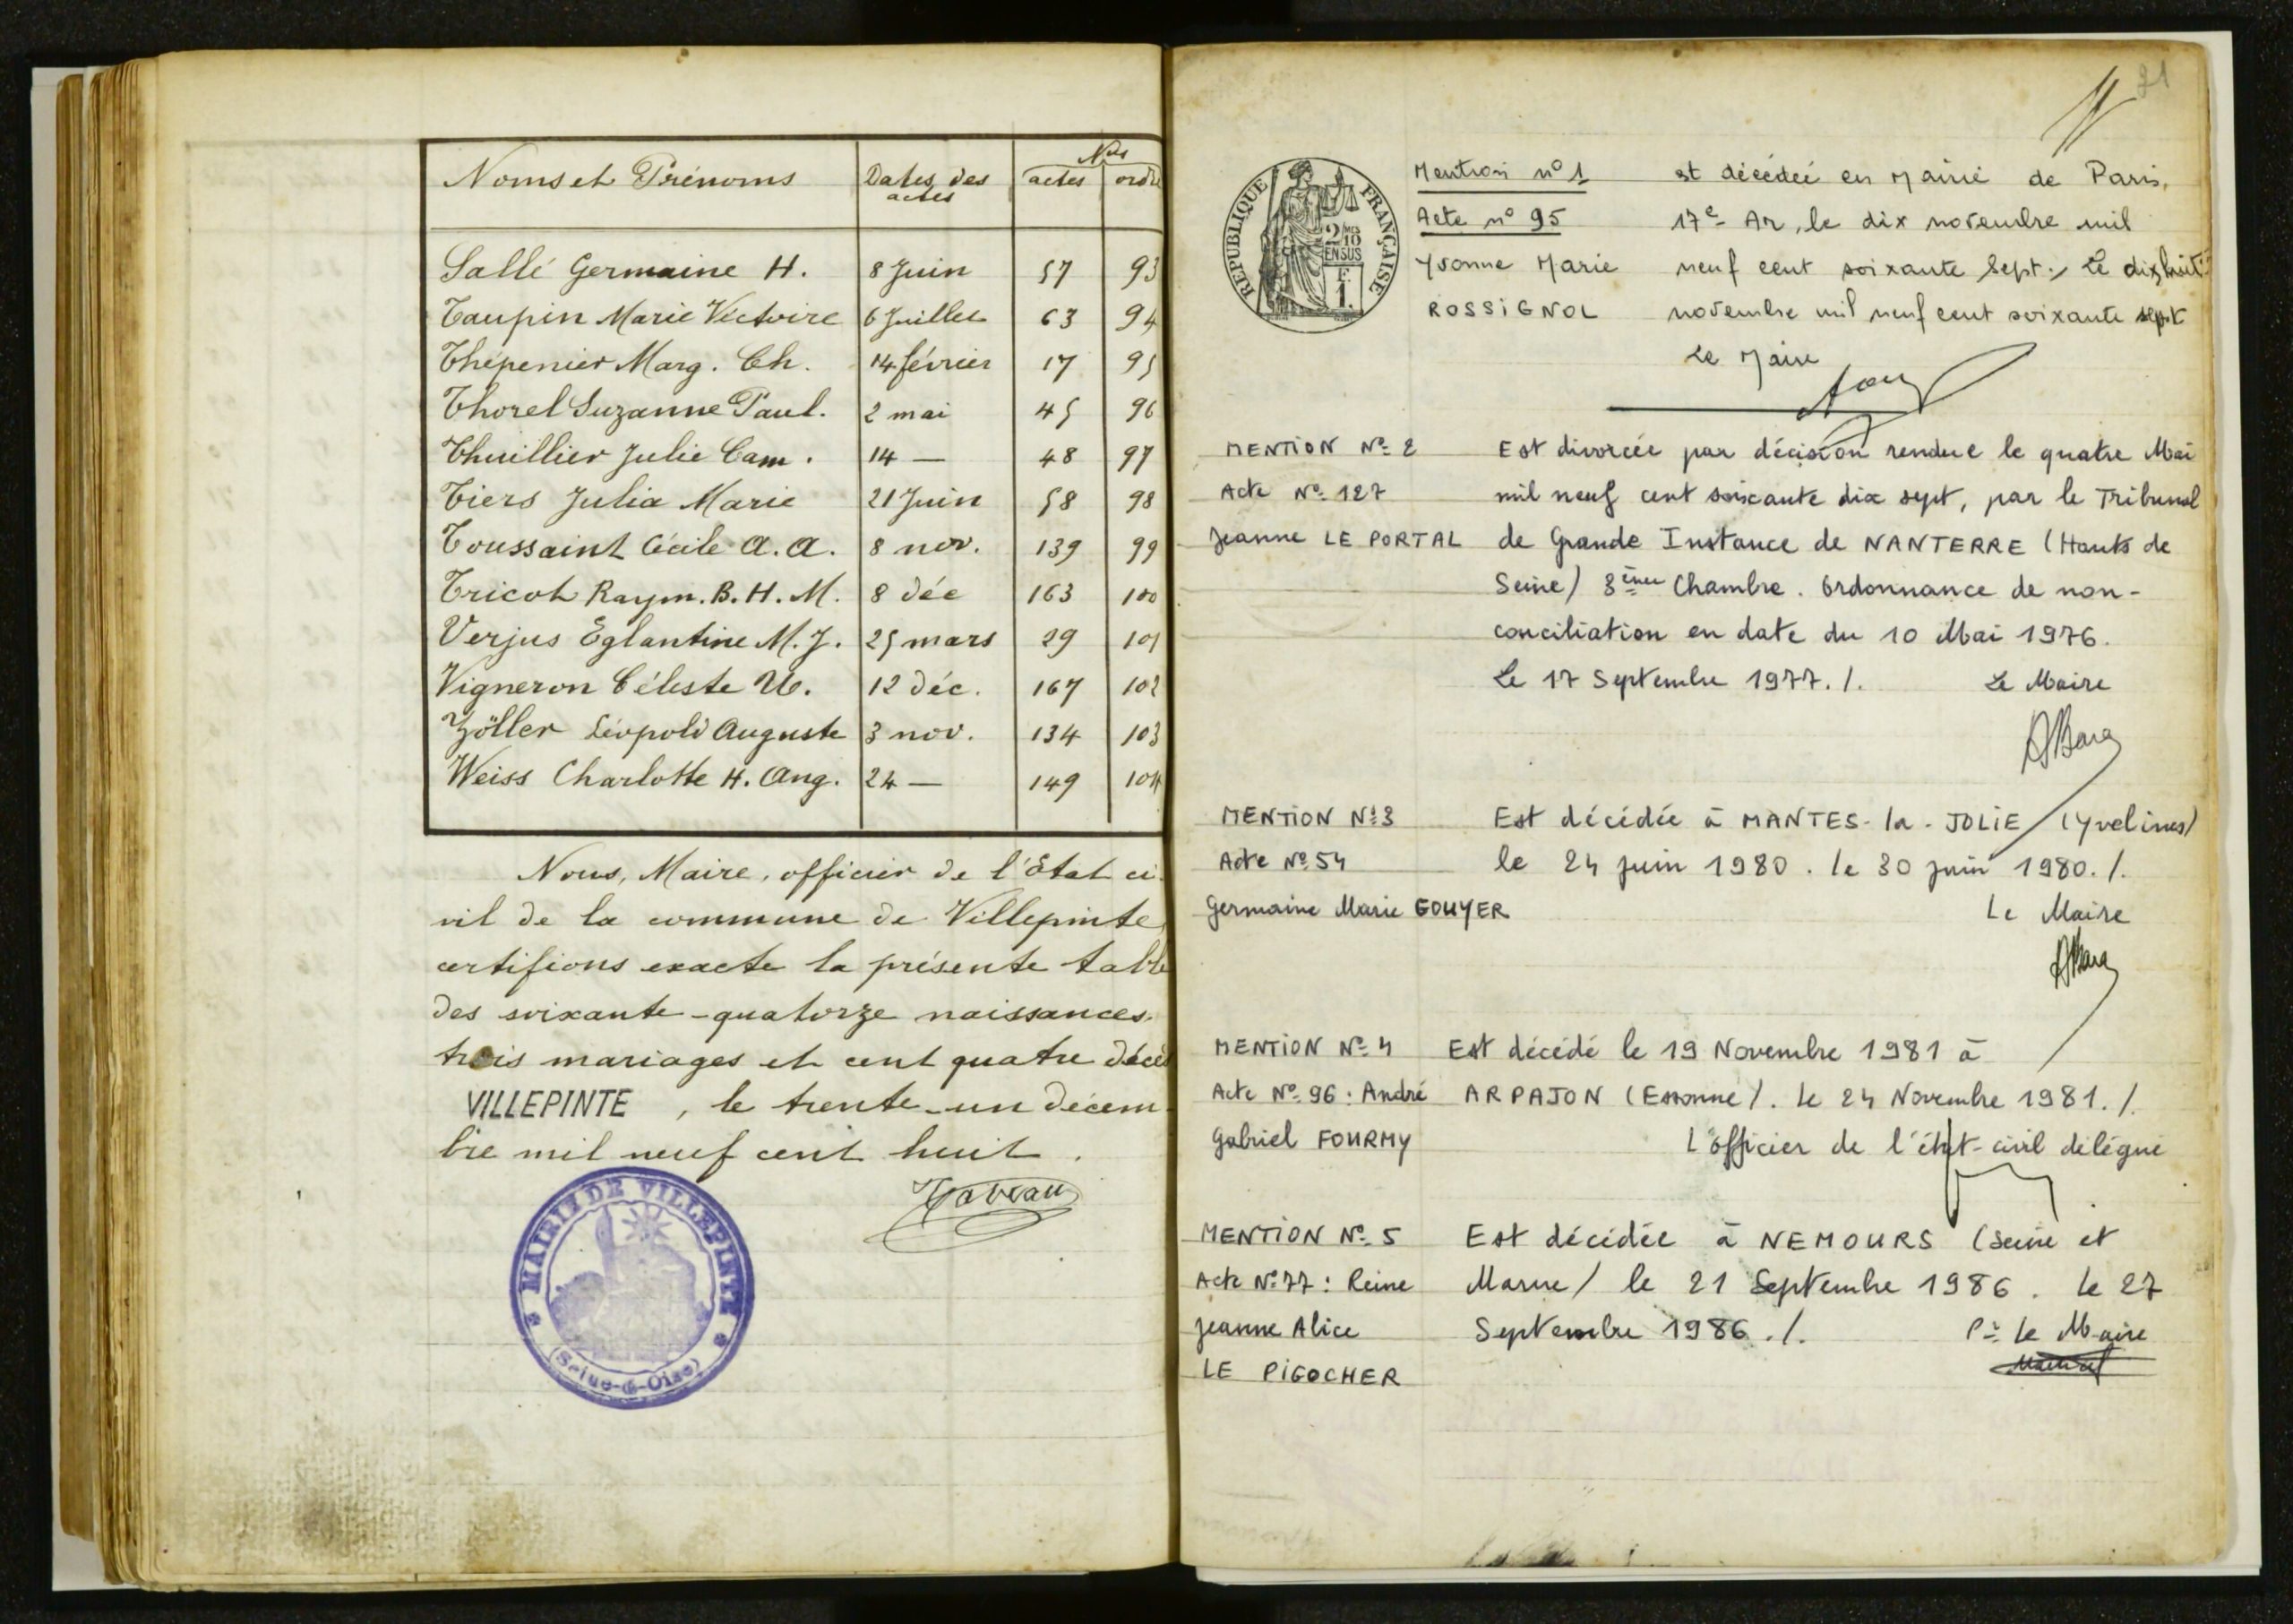 Noms et Prénoms Dates des actes Nos actes ordre
Sallé Germaine H. 8 Juin 57 93
Taupin Marie Victoire 6 Juillet 63 94
Thépenier Marg. Ch. 14 février 17 95
Thorel Suzanne Paul. 2 mai 45 96
Thuillier Julie Cam. 14 — 48 97
Tiers Julia Marie 21 Juin 58 98
Toussaint Cécile A. A. 8 nov. 139 99
Tricot Raym. B. H. M. 8 déc 163 100
Verjus Eglantine M. J. 25 mars 29 101
Vigneron Céleste 12 déc. 167 102
Zöller Léopold Auguste 3 nov. 134 103
Weiss Charlotte H. Aug. 24 — 149 104
Nous, Maire, officier de l'Etat ci-
vil de la commune de Villepinte
certifions exacte la présente table
des soixante-quatorze naissances,
trois mariages et cent quatre décès
VILLEPINTE, le trente-un décem-
bre mil neuf cent huit.
MAIRIE DE VILLEPINTE
(Seine-&-Oise)
91
REPUBLIQUE FRANÇAISE
2/10 EN SUS
F. 1.
Mention n° 1 est décédée en Mairie de Paris,
Acte n° 95 17e Ar, le dix novembre mil
Yvonne Marie neuf cent soixante sept./ Le dix huit
ROSSIGNOL novembre mil neuf cent soixante sept
Le Maire
MENTION N° 2 Est divorcée par décision rendue le quatre Mai
Acte N° 127 mil neuf cent soixante dix sept, par le Tribunal
Jeanne LE PORTAL de Grande Instance de NANTERRE (Hauts de
Seine) 8ème Chambre. Ordonnance de non-
conciliation en date du 10 Mai 1976.
Le 17 Septembre 1977./. Le Maire
MENTION N° 3 Est décédée à MANTES-la-JOLIE (Yvelines)
Acte N° 54 le 24 juin 1980. le 30 juin 1980./.
Germaine Marie GOUYER Le Maire
MENTION N° 4 Est décédé le 19 Novembre 1981 à
Acte N° 96 : André ARPAJON (Essonne). Le 24 Novembre 1981./.
Gabriel FOURMY L'officier de l'état-civil délégué
MENTION N° 5 Est décédée à NEMOURS (Seine et
Acte N° 77 : Reine Marne) le 21 Septembre 1986. Le 27
Jeanne Alice Septembre 1986./. Pr le Maire
LE PIGOCHER